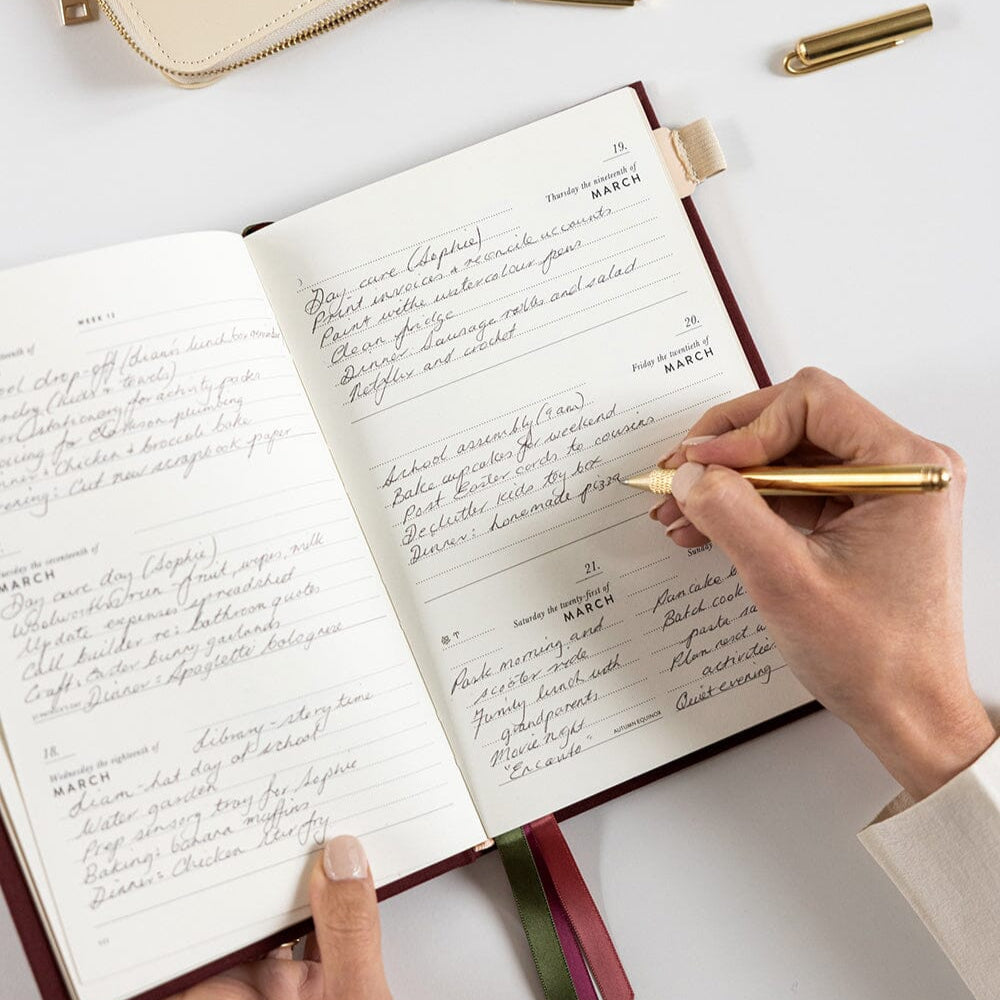 WEEK 12
ool drop-off (Liam's lunch box
ndry (kids + towels)
stationary for activity packs
for plumbing
nner: Chicken + broccoli bake
ening: Cut new scrapbook paper
Tuesday the seventeenth of
MARCH
Day care day (Sophie)
Woolworths run fruit, wipes, milk
Update expenses spreadsheet
Call builder re: bathroom quotes
Craft: Easter bunny garlands
Dinner: Spaghetti bolognese
18.
Wednesday the eighteenth of
MARCH
Library - story time
Liam - hat day at school
Water garden
Prep sensory tray for Sophie
Baking: banana muffins
Dinner: Chicken stir fry
19.
Thursday the nineteenth of
MARCH
Day care (Sophie)
Print invoices + reconcile accounts
Paint withe watercolour pens
Clean fridge
Dinner Sausage rolls and salad
Netflix and crochet
20.
Friday the twentieth of
MARCH
School assembly (9am)
Bake cupcakes for weekend
Post Easter cards to cousins
Declutter kids toy box
Dinner: homemade pizza
21.
Saturday the twenty-first of
MARCH
T
Park morning and
scooter ride
Family lunch with
grandparents
Movie night
"Encanto"
AUTUMN EQUINOX
Sunday
Pancake b
Batch cook
pasta sa
Plan next w
activitie
Quiet evening